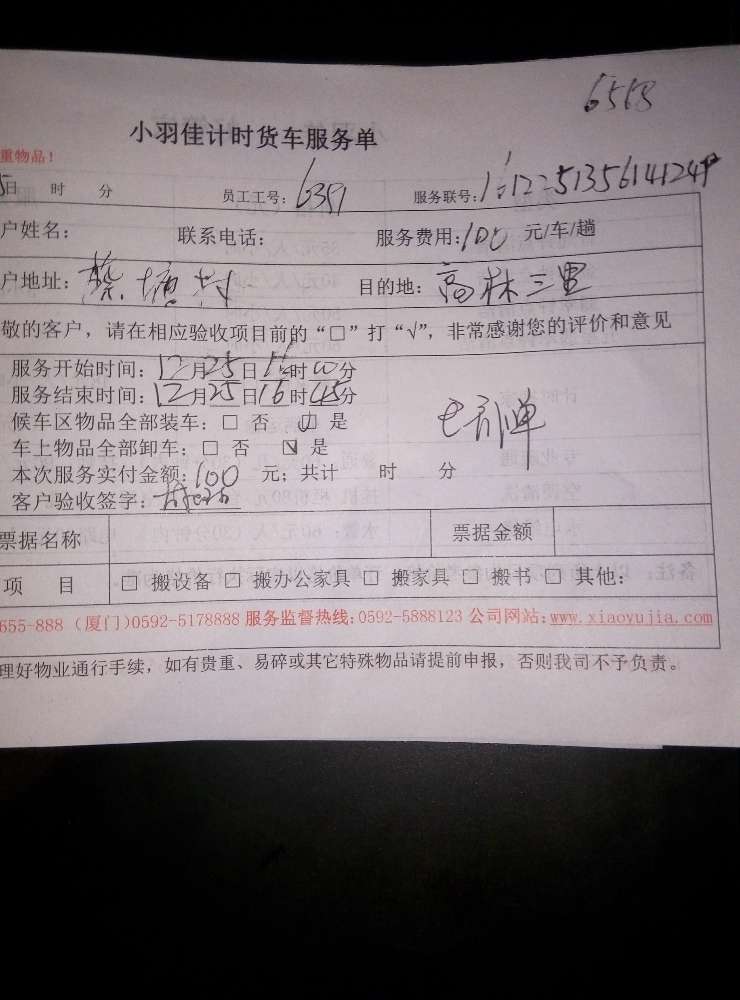 小羽佳计时货车服务单
重物品！
5日 时 分 员工工号：6391 服务联号：
户姓名： 联系电话： 服务费用：100 元/车/趟
户地址：蔡塘村 目的地：高林三里
敬的客户，请在相应验收项目前的“□”打“√”，非常感谢您的评价和意见
服务开始时间：12月25日 时00分
服务结束时间：12月25日16时45分
候车区物品全部装车：□ 否 ☑ 是
车上物品全部卸车：□ 否 ☑ 是
本次服务实付金额：100 元；共计 时 分
客户验收签字：
票据名称 票据金额
项 目 □ 搬设备 □ 搬办公家具 □ 搬家具 □ 搬书 □ 其他：
655-888（厦门）0592-5178888 服务监督热线：0592-5888123 公司网站：www.xiaoyujia.com
理好物业通行手续，如有贵重、易碎或其它特殊物品请提前申报，否则我司不予负责。